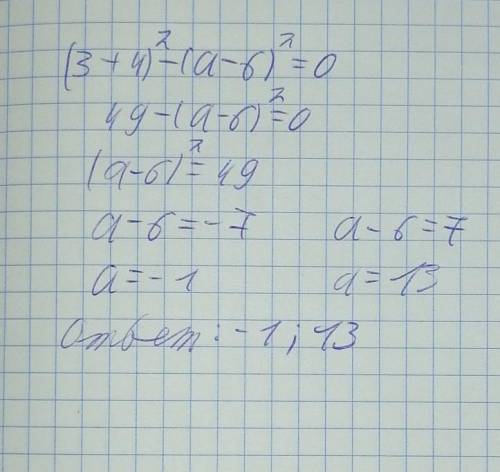 (3+4)²-(a-6)²=0
49-(a-6)²=0
(a-6)²=49
a-6=-7 a-6=7
a=-1 a=13
Ответ: -1; 13